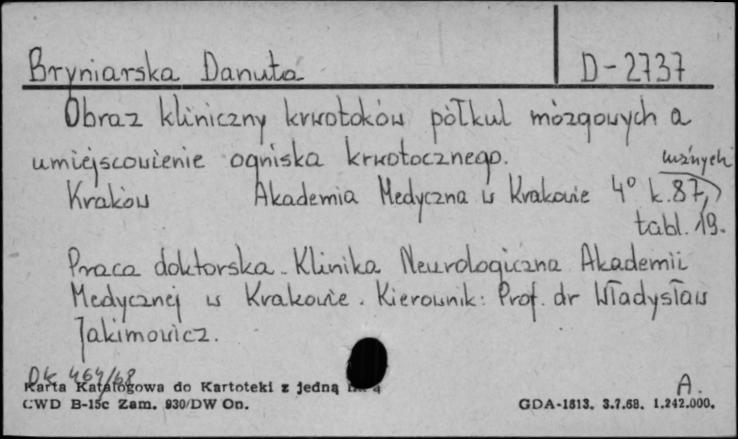 Bryniarska Danuta D-2737
Obraz kliniczny krwotoków półkul mózgowych a
umiejscowienie ogniska krwotocznego.
luźnych
Kraków Akademia Medyczna w Krakowie 4° k.87,
tabl. 19.
Praca doktorska. Klinika Neurologiczna Akademii
Medycznej w Krakowie. Kierownik: Prof. dr Władysław
Jakimowicz.
Dk 464/68
Karta Katalogowa do Kartoteki z jedną
A.
CWD B-15c Zam. 930/DW On. GDA-1613. 3.7.68. 1.242.000.